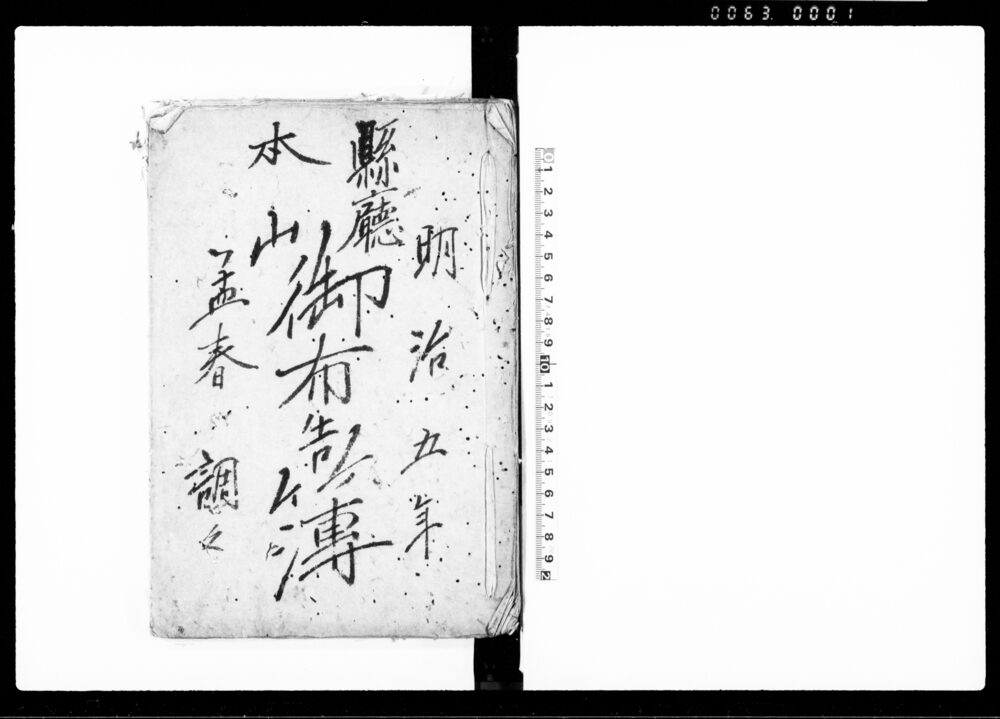 0063. 0001
明治五年
縣廳
御布告簿
本山
孟春
調之
0 1 2 3 4 5 6 7 8 9 10 1 2 3 4 5 6 7 8 9 2